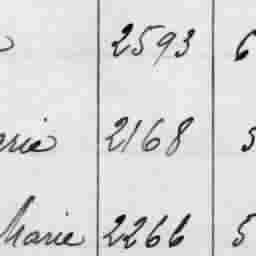 2593 6
arie 2168 5
Marie 2266 5